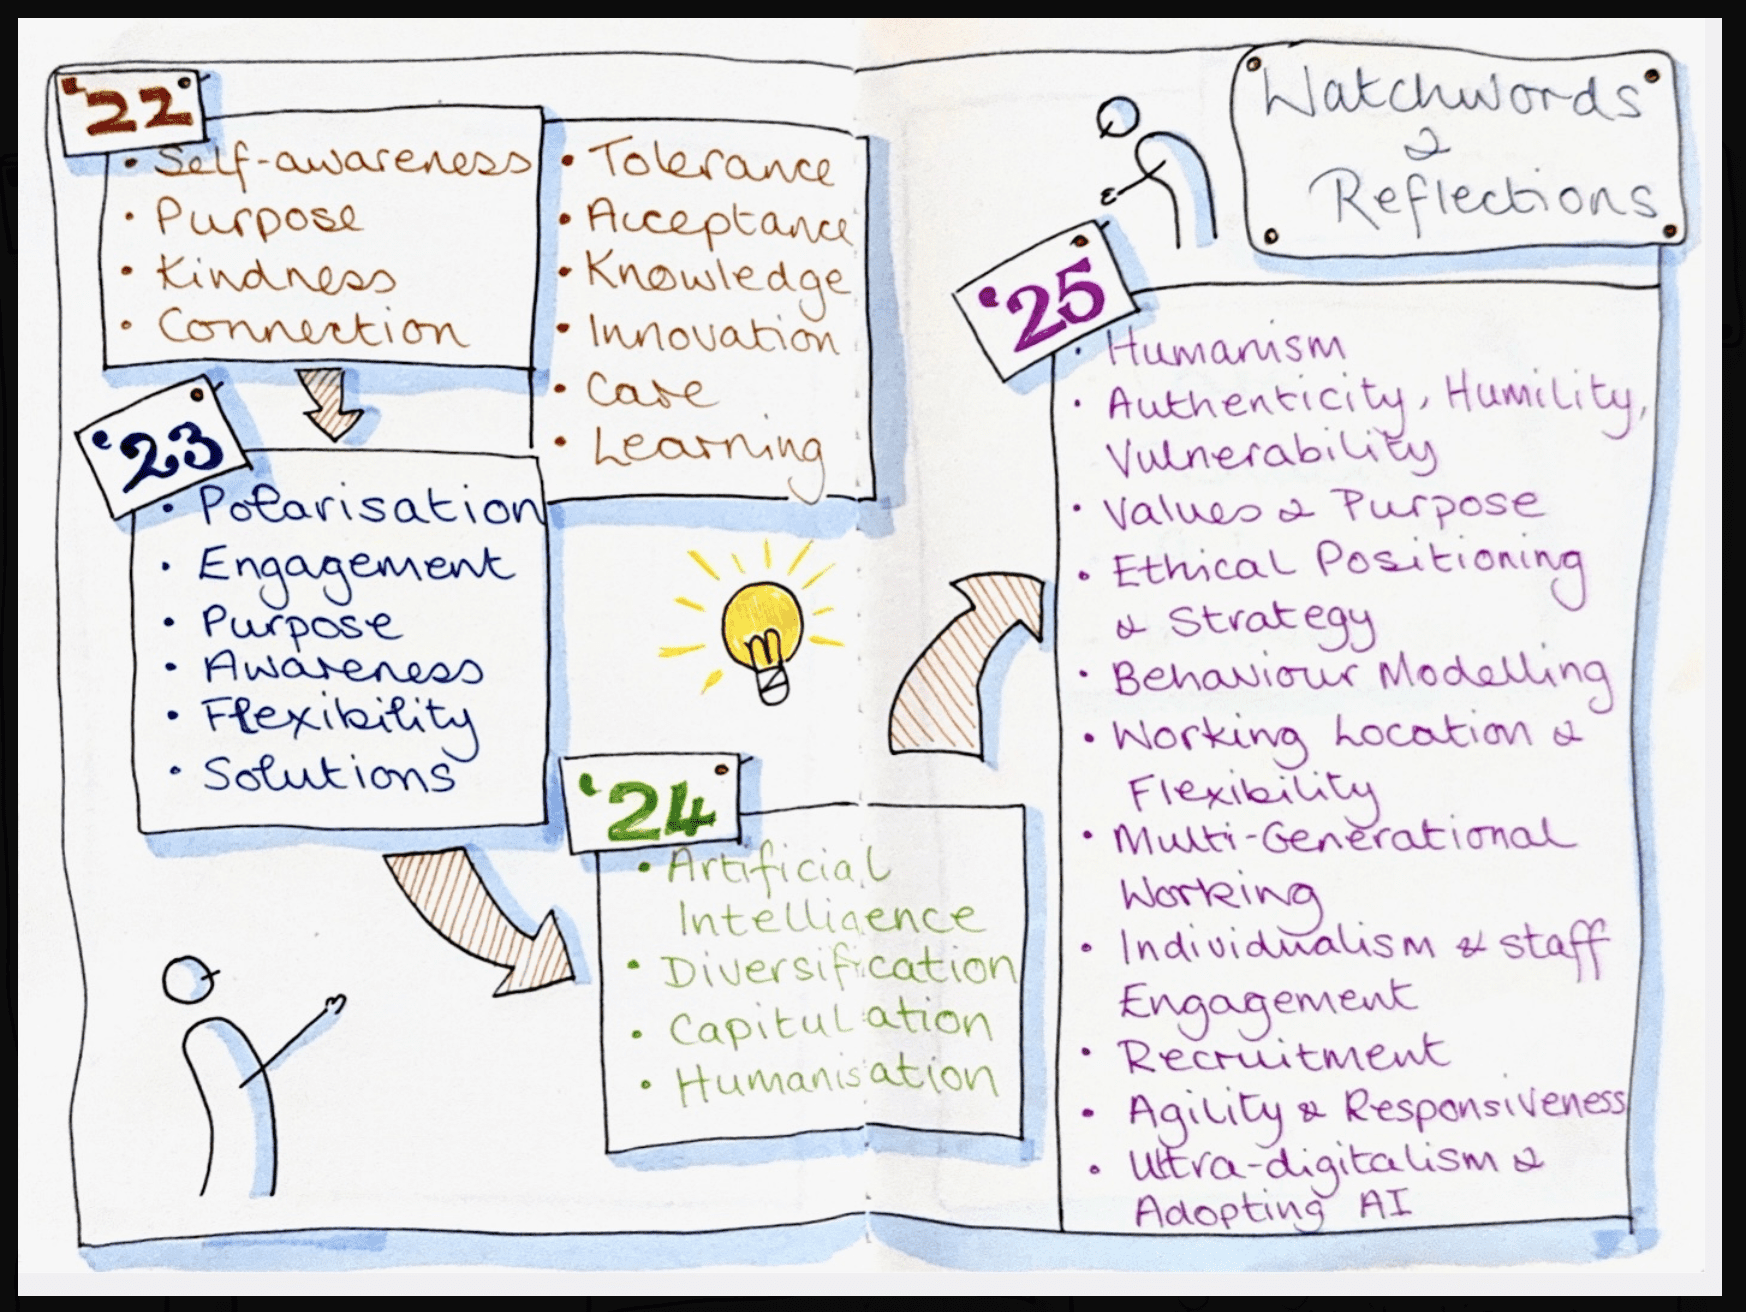 '22
• Self-awareness
• Purpose
• Kindness
• Connection
• Tolerance
• Acceptance
• Knowledge
• Innovation
• Care
• Learning
'23
• Polarisation
• Engagement
• Purpose
• Awareness
• Flexibility
• Solutions
'24
• Artificial
Intelligence
• Diversification
• Capitulation
• Humanisation
Watchwords
&
Reflections
'25
• Humanism
• Authenticity, Humility,
Vulnerability
• Values & Purpose
• Ethical Positioning
& Strategy
• Behaviour Modelling
• Working Location &
Flexibility
• Multi-Generational
Working
• Individualism & staff
Engagement
• Recruitment
• Agility & Responsiveness
• Ultra-digitalism &
Adopting AI